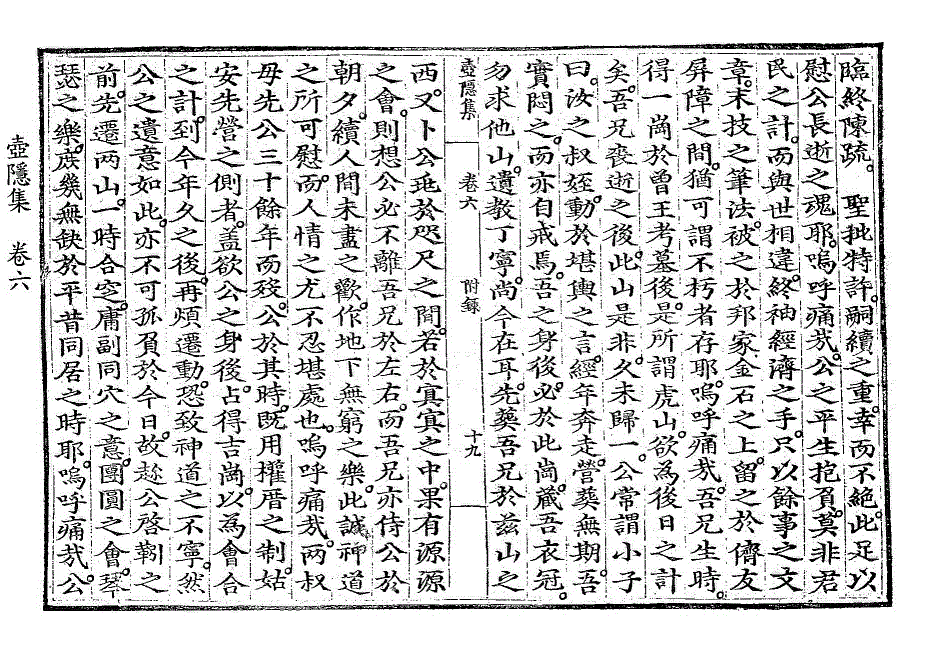 臨終陳疏。 聖批特許。嗣續之重。幸而不絶。此足以
慰公長逝之魂耶。嗚呼痛哉。公之平生抱負。莫非君
民之計。而與世相違。終袖經濟之手。只以餘事之文
章。末技之筆法。被之於邦家金石之上。留之於儕友
屛障之間。猶可謂不朽者存耶。嗚呼痛哉。吾兄生時。
得一崗於曾王考墓後。是所謂虎山。欲為後日之計
矣。吾兄喪逝之後。此山是非。久未歸一。公常謂小子
曰。汝之叔姪。動於堪輿之言。經年奔走。營葬無期。吾
實悶之。而亦自戒焉。吾之身後。必於此崗。藏吾衣冠。
勿求他山。遺教丁寧。尚今在耳。先葬吾兄於玆山之
壺隱集 卷六 附錄 十九
西。又卜公兆於咫尺之間。若於㝠㝠之中。果有源源
之會。則想公必不離吾兄於左右。而吾兄亦侍公於
朝夕。續人間未盡之歡。作地下無窮之樂。此誠神道
之所可慰。而人情之尤不忍堪處也。嗚呼痛哉。兩叔
母先公三十餘年而歿。公於其時。旣用權厝之制。姑
安先營之側者。盖欲公之身後。占得吉崗。以為會合
之計。到今年久之後。再煩遷動。恐致神道之不寧。然
公之遺意如此。亦不可孤負於今日。故趂公啓靷之
前。先遷两山。一時合窆。庸副同穴之意。團圓之會。琴
瑟之樂。庶幾無缺於平昔同居之時耶。嗚呼痛哉。公
壺隱集 卷六